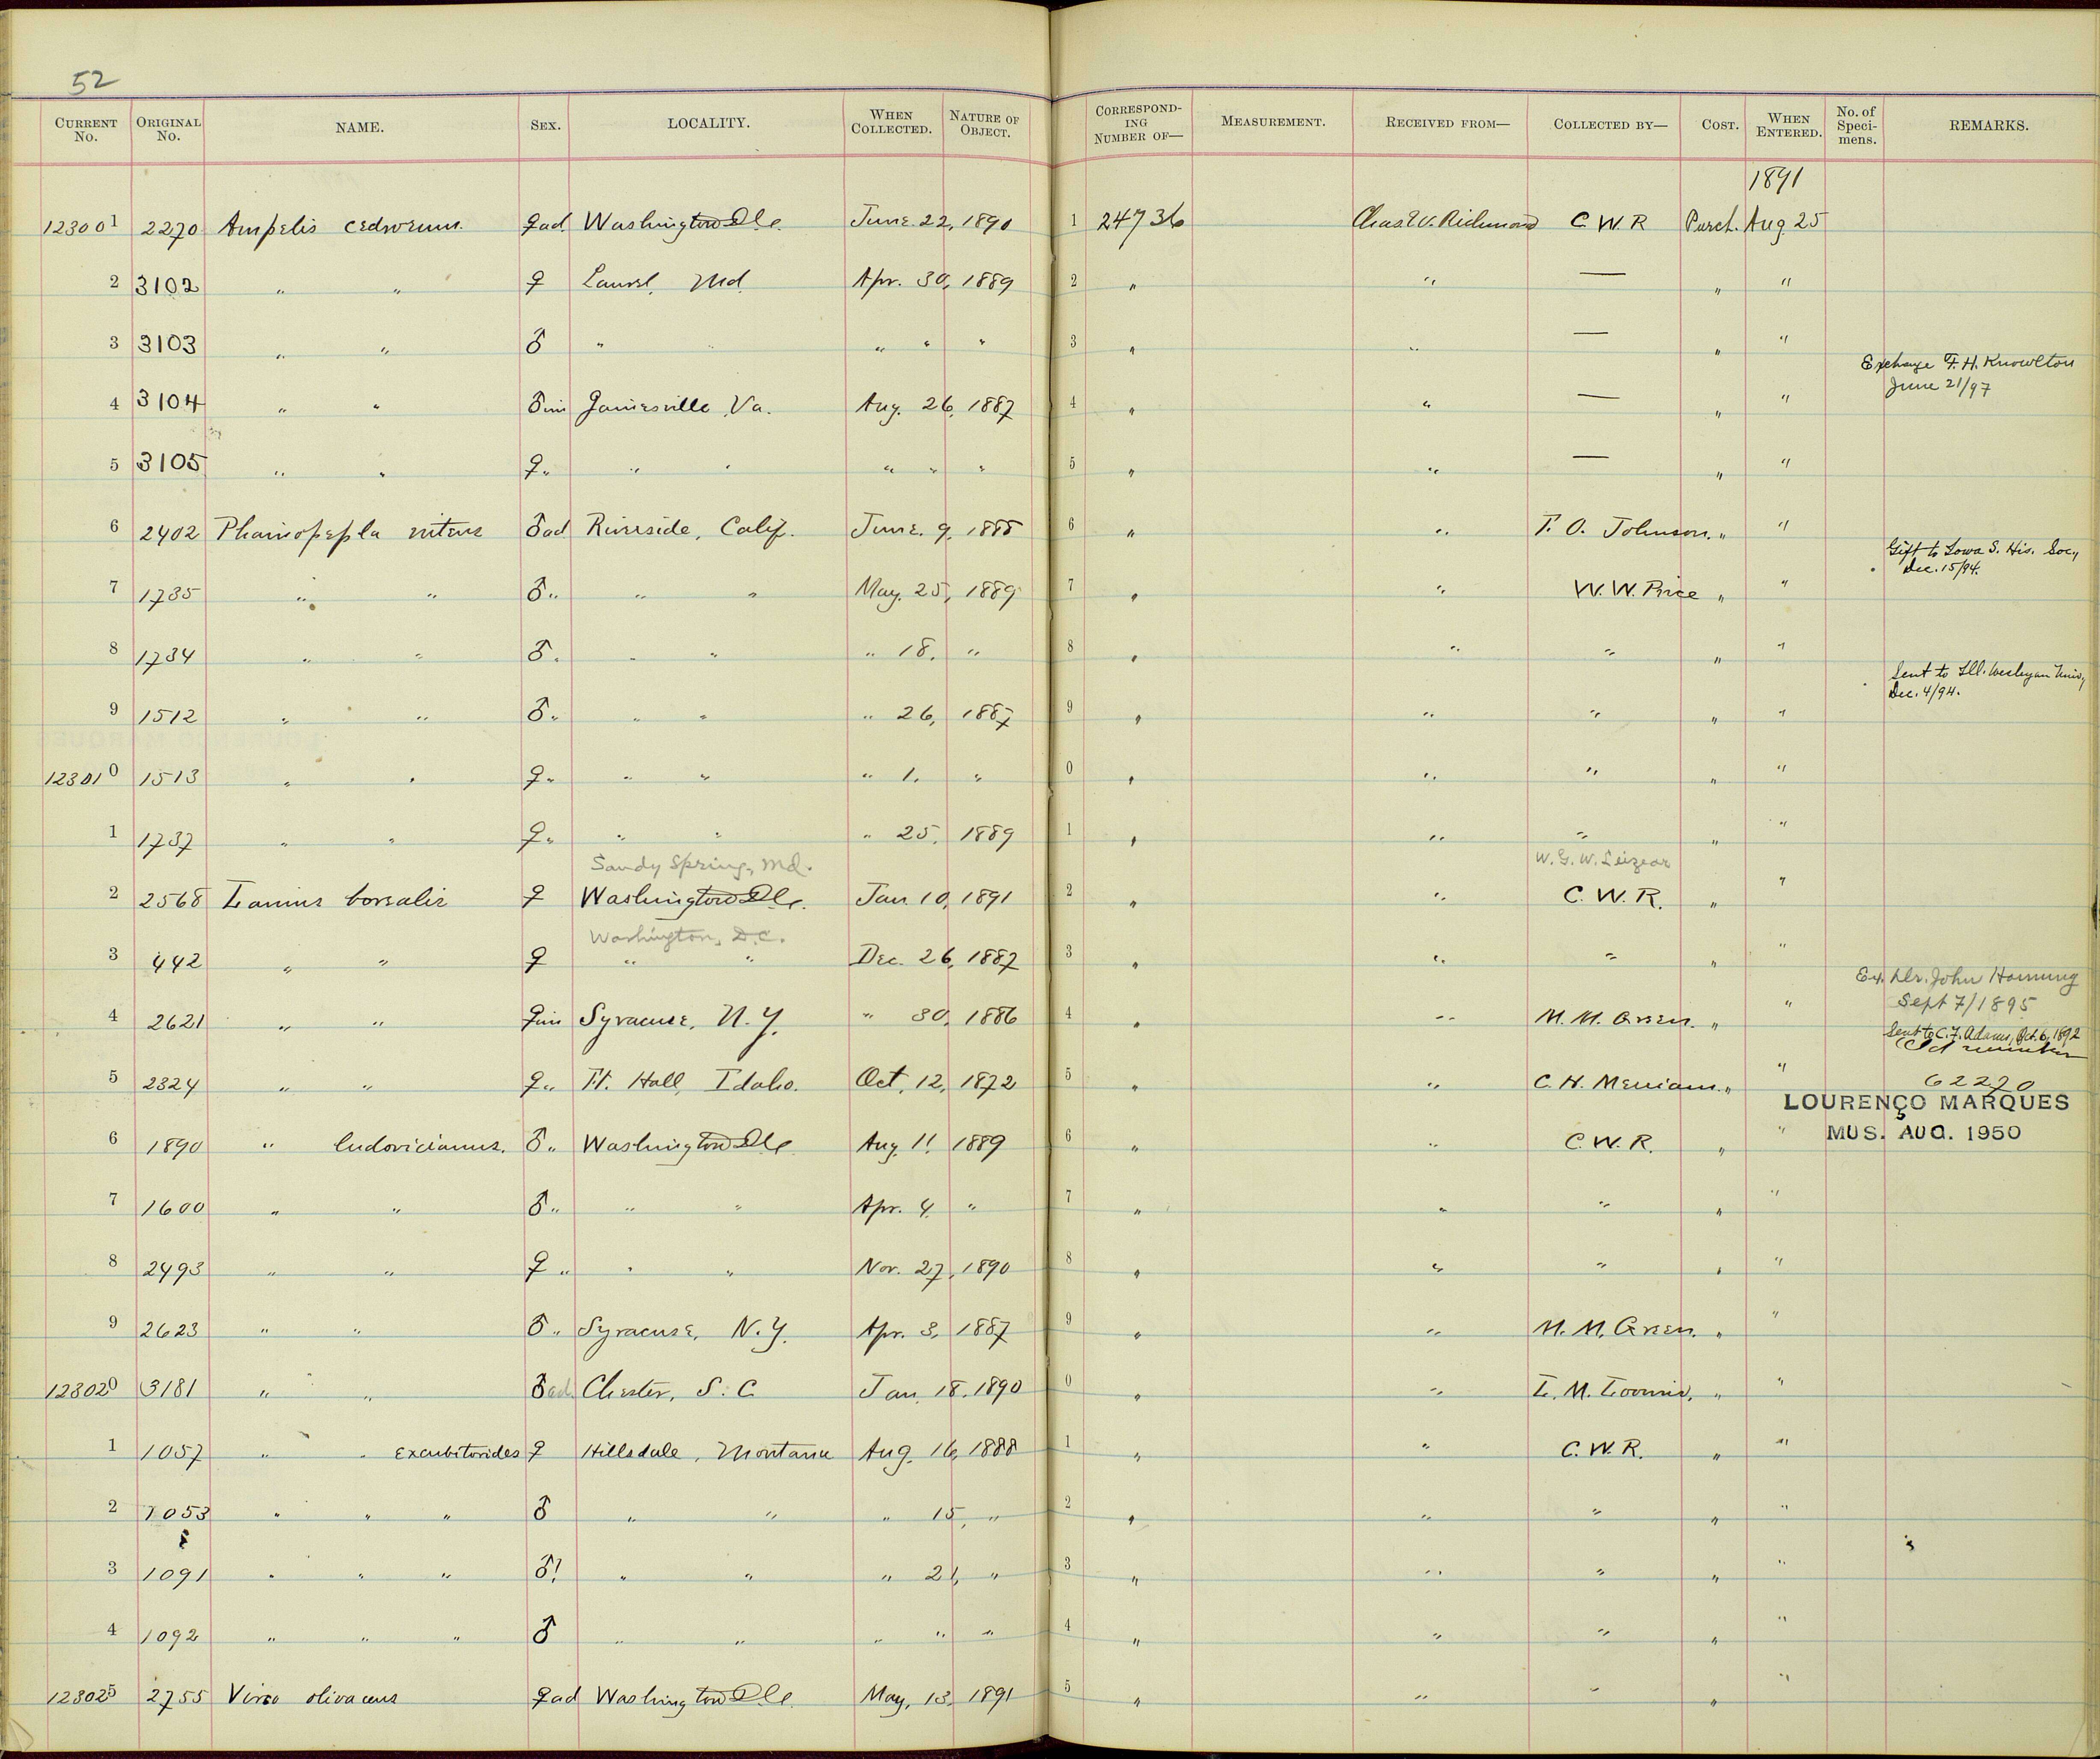 52
CURRENT No. ORIGINAL No. NAME. SEX. LOCALITY. WHEN COLLECTED. NATURE OF OBJECT. CORRESPONDING NUMBER OF— MEASUREMENT. RECEIVED FROM— COLLECTED BY— COST. WHEN ENTERED. No. of Specimens. REMARKS.
1891
123001 2270 Ampelis cedrorum ♀ad Washington D.C. June 22, 1890 1 24736 Chas. W. Richmond C W R Purch. Aug 25
2 3102 " " ♀ Laurel, Md Apr. 30, 1889 2 " " — " "
3 3103 " " ♂ " " " " " 3 " " — " "
Exchange F. H. Knowlton
June 21/97
4 3104 " " ♂im Jamesville, Va. Aug. 26, 1887 4 " " — " "
5 3105 " " ♀" " " " " " 5 " " — " "
6 2402 Phainopepla nitens ♂ad Riverside, Calif. June 9, 1885 6 " " T. O. Johnson. " "
Gift to Iowa S. His. Soc,
Dec. 15/94.
7 1735 " " ♂" " " May 25, 1889 7 " " W. W. Price " "
8 1734 " " ♂" " " " 18, " 8 " " " " "
Sent to Ill. Wesleyan Univ,
Dec. 4/94.
9 1512 " " ♂" " " " 26, 1887 9 " " " " "
123010 1513 " " ♀" " " " 1, " 0 " " " " "
1 1737 " " ♀" " " " 25, 1889 1 " " " " "
Sandy Spring, Md. W. G. W. Leizear
2 2568 Lanius borealis ♀ Washington D.C. Jan 10, 1891 2 " " C. W. R. " "
Washington, D.C.
3 442 " " ♀ " " Dec. 26, 1887 3 " " " " "
Ex. Dr. John Hornung
Sept 7/1895
4 2621 " " ♀im Syracuse, N. Y. " 30, 1886 4 " " M. M. Green. " "
Sent to C. F. Adams, Oct. 6, 1892
Old number
5 2324 " " ♀" Ft. Hall, Idaho. Oct, 12, 1872 5 " " C. H. Merriam. " " 62270
LOURENÇO MARQUES
6 1890 " ludovicianus. ♂" Washington D.C. Aug. 11 1889 6 " " C. W. R. " " MUS. AUG. 1950
7 1600 " " ♂" " " Apr. 4 " 7 " " " " "
8 2493 " " ♀" " " Nov. 27, 1890 8 " " " " "
9 2623 " " ♂" Syracuse, N. Y. Apr. 3, 1887 9 " " M. M. Green. " "
123020 3181 " " ♂ad. Chester, S. C Jan. 18, 1890 0 " " L. M. Loomis, " "
1 1057 " " excubitorides ♀ Hillsdale, Montana Aug. 16, 1888 1 " " C. W. R. " "
2 1053 " " " ♂ " " " 15, " 2 " " " " "
3 1091 " " " ♂! " " " 21, " 3 " " " " "
4 1092 " " " ♂ " " " " " 4 " " " " "
123025 2755 Vireo olivaceus ♀ad Washington D.C. May, 13, 1891 5 " " " " "